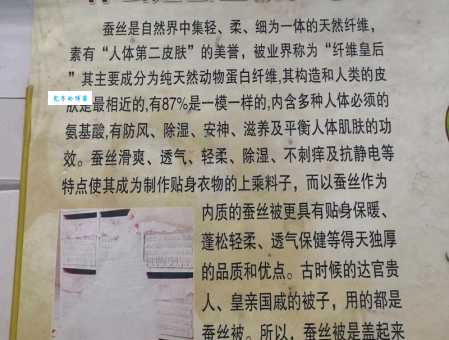 蚕丝是自然界中集轻、柔、细为一体的天然纤维,
素有“人体第二皮肤”的美誉，被业界称为“纤维皇后
”其主要成分为纯天然动物蛋白纤维,其构造和人类的皮
肤是最相近的,有87%是一模一样的,内含多种人体必须的
氨基酸,有防风、除湿、安神、滋养及平衡人体肌肤的功
效。蚕丝滑爽、透气、轻柔、除湿、不刺痒及抗静电等
特点使其成为制作贴身衣物的上乘料子，而以蚕丝作为
内质的蚕丝被更具有贴身保暖、
蓬松轻柔、透气保健等得天独厚
的品质和优点。古时候的达官贵
人、皇亲国戚的被子，用的都是
蚕丝被。所以，蚕丝被是盖起来